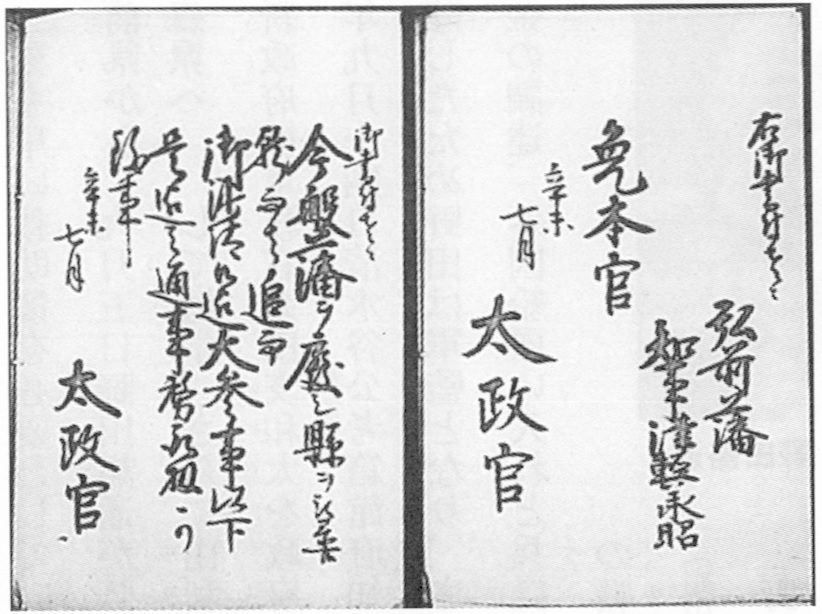 右御書付
弘前藩
知事津輕承昭
免本官
辛未
七月
太政官
御書付
今般藩ヲ廢シ縣ヲ被置
候ニ付テハ追而
御沙汰候迄大参事以下
是迄之通事務取扱可
致事
辛未
七月
太政官